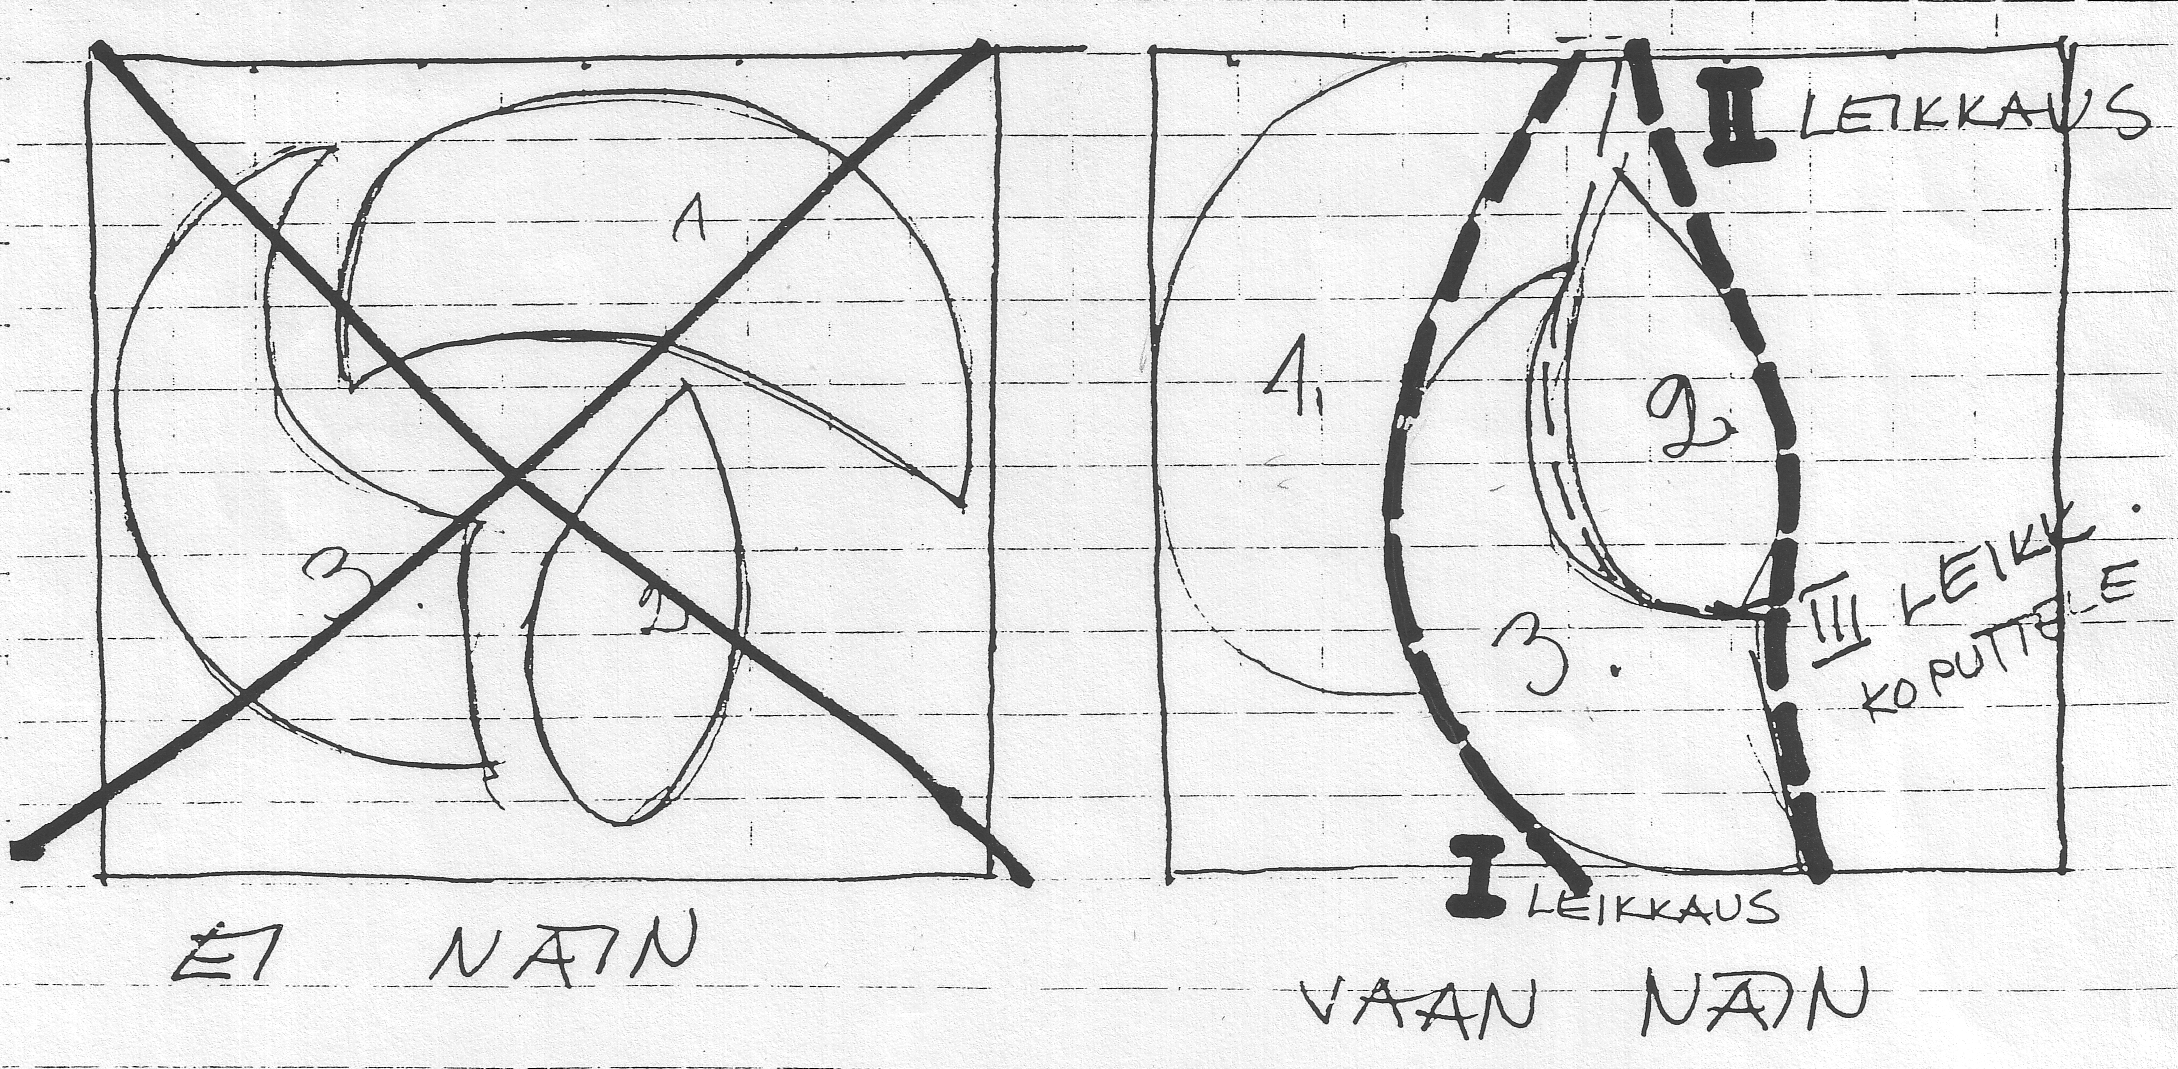 1
3
2
EI NÄIN
II LEIKKAUS
1,
2.
3.
III LEIKK.
KOPUTTELE
I LEIKKAUS
VAAN NÄIN